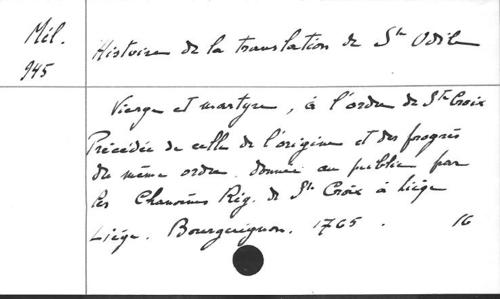 Mél.
945
Histoire de la translation de Ste Odile
Vierge et martyre, à l'ordre de Ste Croix
Précédée de celle de l'origine et des progrès
du même ordre. donnée au public par
les Chanoines Rég. de Ste Croix à Liège
Liège. Bourguignon. 1765. 16